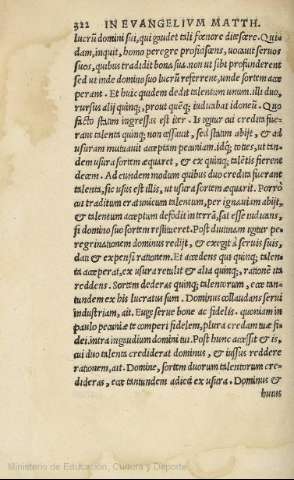 322 IN EVANGELIVM MATTH.
lucrũ domini sui, qui gaudet tali fœnore ditescere. Qui
dam, inquit, homo peregre profiscens, uocauit seruos
suos, quibus tradidit bona sua, non ut sibi profunderent
sed ut inde domino suo lucrũ referrent, unde sortem acce
perant. Et huic quidem dedit talentum unum. illi duo,
rursus alij quinq;, prout quēq; iudicabat idoneũ. Quo
facto statim ingressus est iter. Is igitur cui credita fue-
rant talenta quinq; non cessauit, sed statim abijt, & ad
usuram mutauit acceptam pecuniam. idq; toties, ut tan-
dem usura sortem æquaret, & ex quinq; talētis fierent
decem. Ad eundem modum quibus duo credita fuerant
talenta, sic usus est illis, ut usura sortem æquarit. Porrò
cui traditum erat unicum talentum, per ignauiam abijt,
& talentum acceptum defodit in terrā, sat esse iudicans,
si domino suo sortem restitueret. Post diutinam igitur pe-
regrinationem dominus redijt, & exegit à seruis suis,
dati & expensi rationem. Et accedens qui quinq; talen-
ta acceperat, ex usura retulit & alia quinq;, rationē ita
reddens. Sortem dederas quinq; talentorum, eæ tan-
tundem ex his lucratus sum. Dominus collaudans serui
industriam, ait. Euge serue bone ac fidelis. quoniam in
paulo pecuniæ te comperi fidelem, plura credam tuæ fi-
dei. intra in gaudium domini tui. Post hunc accessit & is,
cui duo talenta crediderat dominus, & iussus reddere
rationem, ait. Domine, sortem duorum talentorum cre-
dideras, eæ tantundem adieci ex usura. Dominus &
huius
Ministerio de Educación, Cultura y Deporte